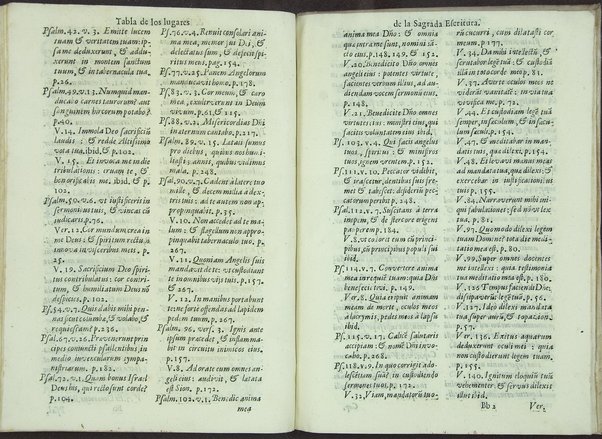 Tabla de los lugares
Psalm.42.v.3. Emitte lucem
tuam & veritatem tuam: ip-
sa me deduxerunt, & addu-
xerunt in montem sanctum
tuum, & in tabernacula tua.
p.26.
Psalm.49.v.13. Numquid man-
ducabo carnes taurorum? aut
sanguinem hircorum potabo?
p.40.
V.14. Immola Deo sacrificiū
laudis: & redde Altissimo
vota tua, ibid, & p.101.
V. 15. Et invoca me in die
tribulationis: eruam te, &
honorificabis me. ibid, & p.
102.
Psalm.50.v.6. vt iustificeris in
sermonibus tuis, & vincas cū
iudicaris. p.76.
Ver.12. Cor mundum crea in
me Deus: & spiritum rectū in
innova in visceribus meis. p.
25.
V. 19. Sacrificium Deo spiri-
tus contribulatus: cor contri-
tum, & humiliatum Deus nō
despicies. p.102.
Psa.54.v.7. Quis dabit mihi pen-
nas sicut columbæ, & volabo, &
requiescam? p.236.
Psal.67.v.26. Prævenerunt prin-
cipes coniuncti psallentibus in
medio iuvencularum tympa-
nistriarum. p.182.
Psal.72.v.1. Quam bonus Israel
Deus, his qui recto sunt corde?
p.104.
Ps.76.v.4. Renuit consolari ani-
ma mea, memor fui Dei, &
delectatus sum, & defecit spi-
ritus meus. pag.154.
Ps.77.v.25. Panem Angelorum
manducavit homo. p.178.
Ps.83.v.3. Cor meum, & caro
mea, exultaverunt in Deum
vivum. p.61, & 215.
Ps.88.v.2. Misericordias Dñi
in æternum cantabo. p.217.
Psalm.89.v.15. Lætati sumus
pro diebus, quibus nos humi-
liasti; annis, quibus vidimus
mala. p.248.
Psal.90.v.7. Cadent à latere tuo
mille, & decem millia à dex-
tris tuis: ad te autem non ap-
propinquabit. p.35.
V.10. Non accedet ad te ma-
lum: & flagellum non appro-
pinquabit tabernaculo tuo. p.
267.
V.11. Quoniam Angelis suis
mandavit de te: vt custodiant
te in omnibus viis tuis. p.157.
& 267.
V.12. In manibus portabunt
te: ne forte offendas ad lapidem
pedem tuum. p.267.
Psalm. 96. vers. 3. Ignis ante
ipsum præcedet, & inflamma-
bit in circuitu inimicos eius.
p.157.
V.8. Adorate eum omnes an-
geli eius: audivit, & lætata
est Sion. p.192.
Psalm.102.v.1. Benedic anima
mea
de la Sagrada Escritura.
anima mea Dño: & omnia
quæ intra me sunt, nomini sā-
cto eius. p.148, 149, & 151.
V.20. Benedicite Dño omnes
angeli eius: potentes virtute,
facientes verbum illius, ad au-
diendam vocem sermonū eius.
p.148.
V.21. Benedicite Dño omnes
virtutes eius: ministri eius, qui
facitis voluntatem eius ibid.
Ps.103.v.4. Qui facis angelos
tuos, spiritus: & ministros
tuos, ignem vrentem. p.152.
Ps.111.v.10. Peccator videbit,
& irascetur, dentibus suis fre-
met & tabescet: desiderium pec-
catorum peribit. p.248.
Psal.112.v.7. Suscitans à terra
inopem, & de stercore erigens
pauperem. p.184.
V.8. vt collocet eum cū princi-
pibus, cū principibus populi sui
ibid.
Ps.114.v.7. Convertere anima
mea in requiē tuam: quia Dñs
benefecit tivi. p.149.
Ver.8. Quia eripuit animam
meam de morte, oculos meos
à lacrymis, pedes meos à lapsu
ibid.
Ps.115.v.17. Calicē salutaris
accipiam: & nomē Dñi invo-
cabo. p.268.
Ps.118.v.9. In quo corrigit ado-
lescētior, suam? in custodiendo
sermones tuos. p.172.
V.32. Viam, mandatorū tuo-
rum cucurri, cum dilatasti cor
meum. p.177.
V.34. Da mihi intellectū, &
scrutabor legē tuā: & custo-
diā illā in toto corde meo p.81.
V.37. Averte oculos meos ne
videant vanitatē: in via tua
vivifica me. p.72.
V.44. Et custodiam legē tuā
semper, in sæculum, & in sæcu-
lum sæculi. p.154.
V.47. Et meditabar in man-
datis tuis, quæ dilexi. p.155.
V.48. Et levavi manus meas
ad mandata tua, quæ dilexi: &
exercebar in iustificationibus
tuis. p.155.
V.84. Narraverunt mihi ini-
qui fabulationes: sed nō vt lex
tua. p.80.
V.97. Quomodo dilexi legem
tuam Domine? tota die medi-
tatio mea est. p.80.
V.99. Super omnes docentes
me intellexi: quia testimonia
tua meditatio mea est. p.180.
V.126. Tempus faciendi Dñe,
dissipaverūt legē tuā, p.56.
V.127. Ideo dilexi mandata
tua super aurū, & topazion.
p.57.
Ver. 136. Exitus aquarum
deduxerunt oculi mei: quia
non custodierunt legem tuam.
p.230.
V. 140. Ignitum eloquiū tuū
vehementer: & servus dilexit
illud ibid.
Bb 2
Ver.